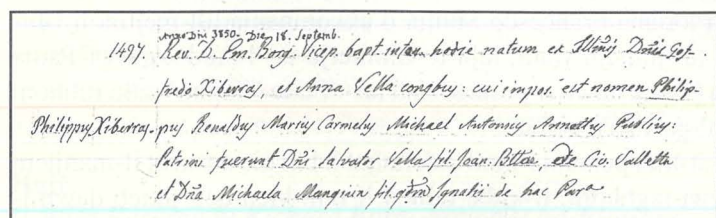 Anno Dñi 1850. Die 18. Septemb.
1497. Rev. D. Em. Borg Vicep. bapt. infan. hodie natum ex Illmis Dñis Gof-
fredo Xiberras, et Anna Vella conjbus: cui impos. est nomen Philip-
Philippus Xiberras. pus Renaldus Marius Carmelus Michael Antonius Publius:
Patrini fuerunt Dñi Salvator Vella fil. Joan. Bttae, de Civ. Valletta
et Dña Michaela Mangion fil. qdm Ignatii de hac Par.a